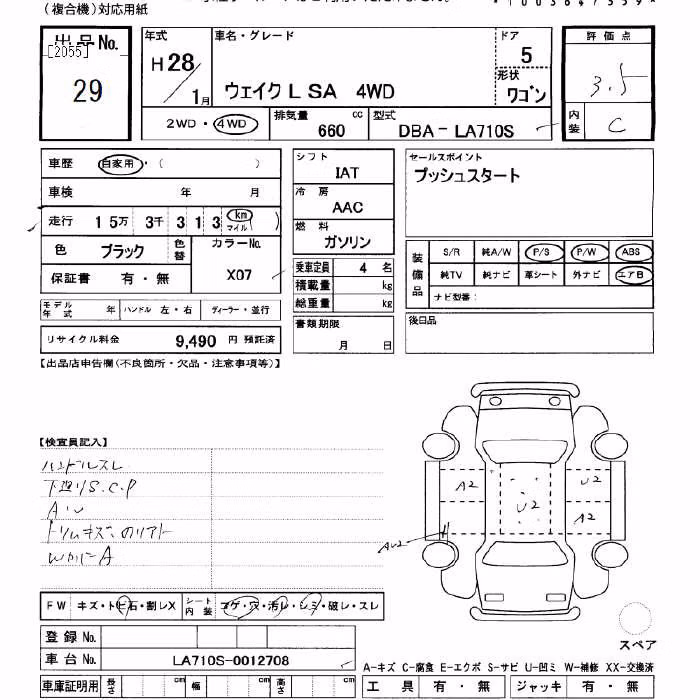 (複合機)対応用紙
出品No.
[2055]
29
年式
H28
1月
車名・グレード
ウェイクL SA 4WD
ドア
5
形状
ワゴン
2WD・4WD
排気量
660
cc
型式
DBA－LA710S
評価点
3.5
内装
C
車歴
自家用・( )
車検 年 月
走行 15万 3千 3 1 3 km マイル( )
色 ブラック
色替
カラーNo.
X07
保証書 有・無
モデル年式 年
ハンドル 左・右
ディーラー・並行
リサイクル料金 9,490 円 預託済
シフト
IAT
冷房
AAC
燃料
ガソリン
乗車定員 4 名
積載量 kg
総重量 kg
書類期限
月 日
セールスポイント
プッシュスタート
装備品
S/R 純A/W P/S P/W ABS
純TV 純ナビ 革シート 外ナビ エアB
ナビ型番:
後日品
【出品店申告欄(不良箇所・欠品・注意事項等)】
【検査員記入】
ハンドルスレ
下廻りS.C.P
A・U
トリムキズ
A
A2
U2
U2
A2
AU2
FW キズ・トビ石・割レX
シート内装 コゲ・穴・汚レ・シミ・破レ・スレ
登録No.
車台No. LA710S-0012708
車庫証明用 長さ cm 幅 cm 高さ cm
スペア
A-キズ C-腐食 E-エクボ S-サビ U-凹ミ W-補修 XX-交換済
工具 有・無 ジャッキ 有・無